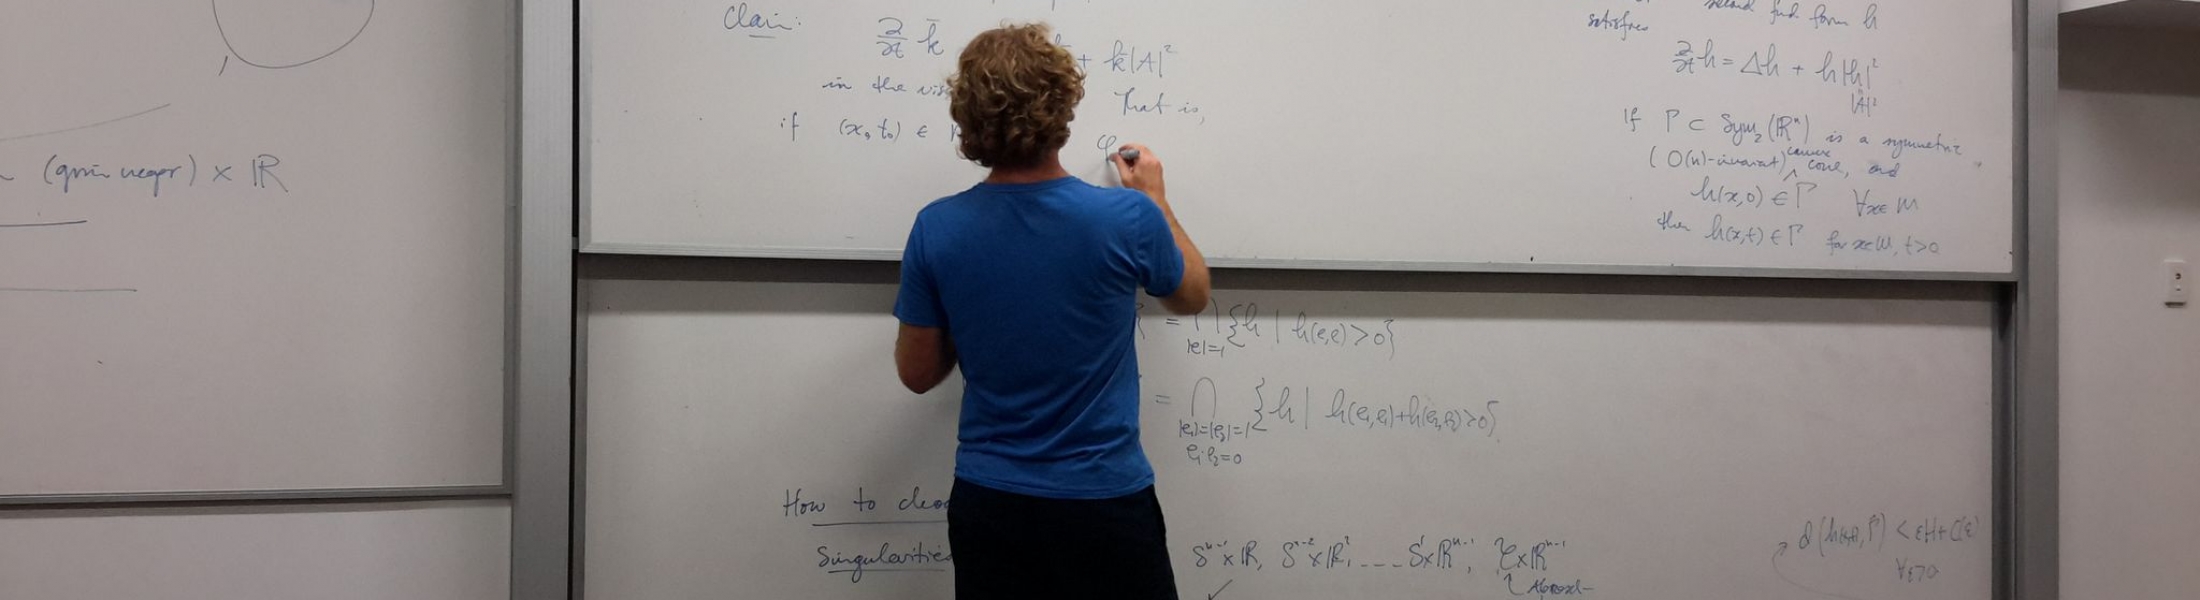 (grim reaper) × ℝ
Claim:
∂/∂t k̄ + k̄|A|²
in the
That is,
if (x₀,t₀) ∈
φ
second fund form h
satisfies
∂/∂t h = Δh + h|h|²
|A|²
If Γ ⊂ Sym₂(ℝⁿ) is a symmetric
(O(n)-invariant) convex cone, and
h(x,0) ∈ Γ ∀x∈M
then h(x,t) ∈ Γ for x∈M, t>0
= ⋂ {h | h(e,e)>0}
|e|=1
= ⋂ {h | h(e₁,e₁)+h(e₂,e₂)>0}
|e₁|=|e₂|=1
e₁·e₂=0
How to
Singularities
Sⁿ⁻¹×ℝ, Sⁿ⁻²×ℝ², ---- S¹×ℝⁿ⁻¹, ×ℝⁿ⁻¹
✓
< εH+C(ε)
∀ε>0